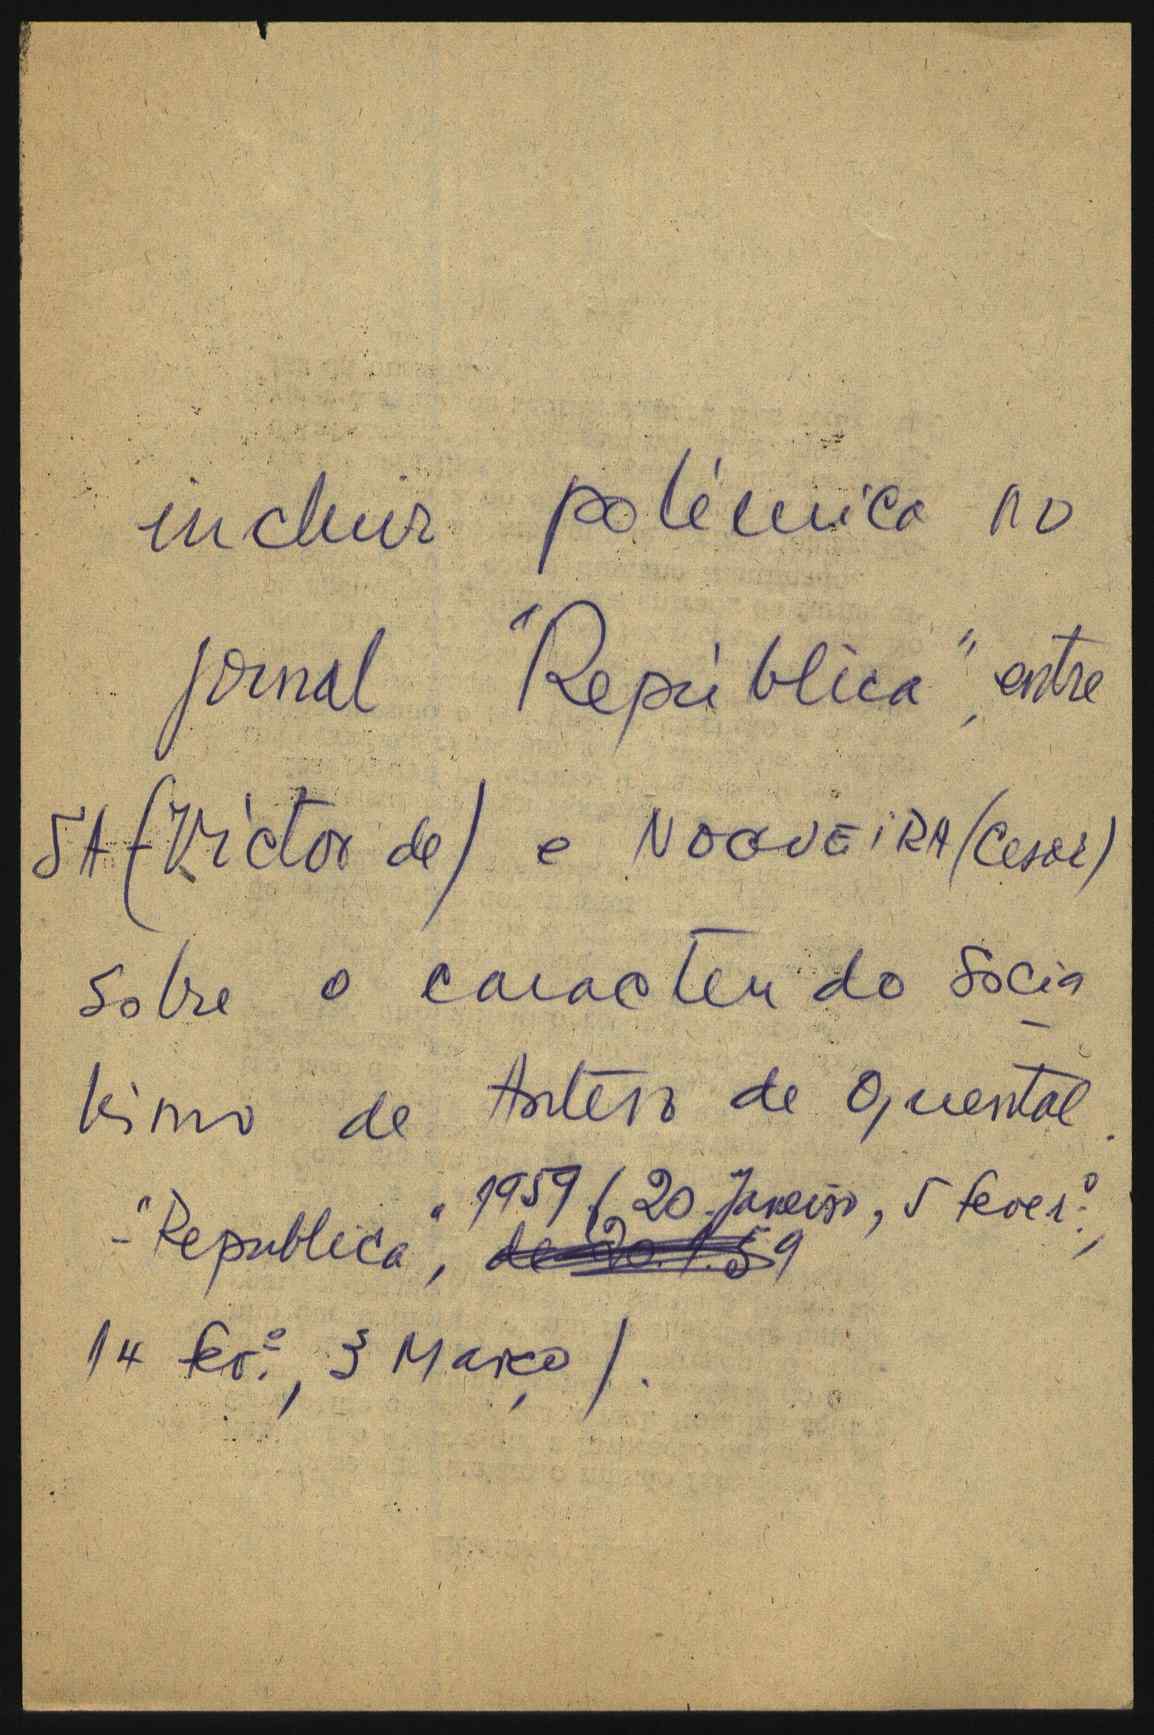 incluir polémica no
jornal "República", entre
SÁ (Victor de) e NOGUEIRA (Cesar)
sobre o caracter do socia
lismo de Antero de Quental.
- "Republica", 1959 / 20 Janeiro, 5 fever.º,
de 20.1.59
14 fev.º, 3 Março /.